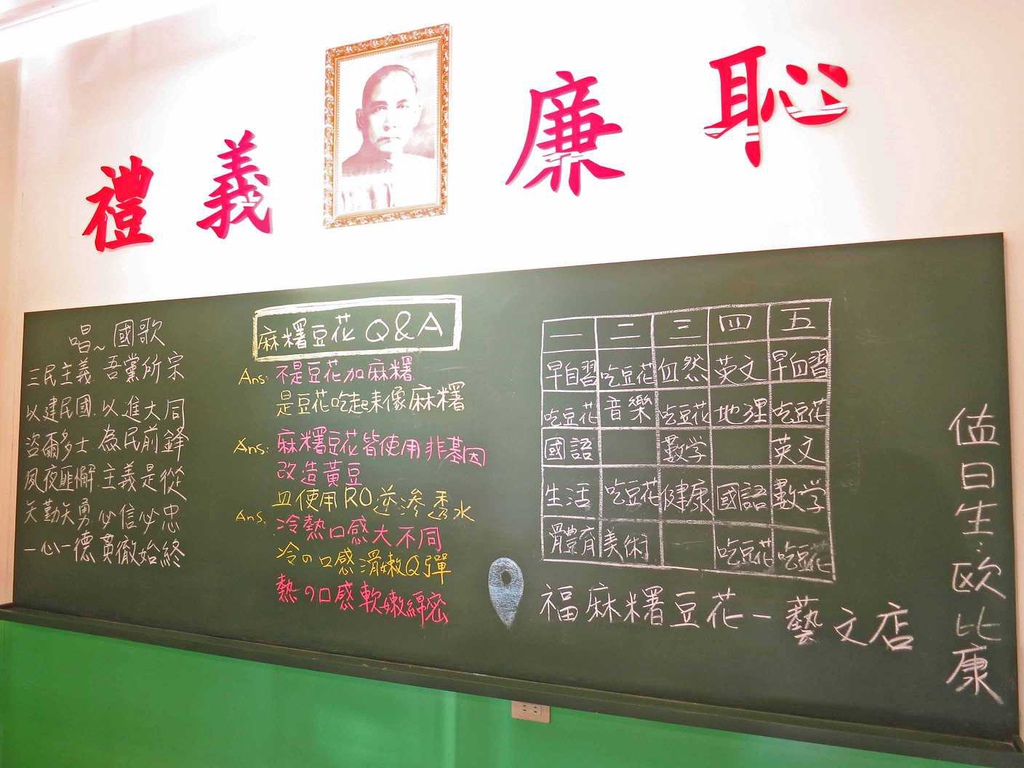 禮 義 廉 恥
唱~國歌
三民主義 吾黨所宗
以建民國 以進大同
咨爾多士 為民前鋒
夙夜匪懈 主義是從
矢勤矢勇 必信必忠
一心一德 貫徹始終
麻糬豆花 Q&A
Ans: 不是豆花加麻糬
是豆花吃起來像麻糬
Ans: 麻糬豆花皆使用非基因
改造黃豆
且使用RO逆滲透水
Ans: 冷熱口感大不同
冷の口感滑嫩Q彈
熱の口感軟嫩綿密
一 二 三 四 五
早自習 吃豆花 自然 英文 早自習
吃豆花 音樂 吃豆花 地理 吃豆花
國語 數学 英文
生活 吃豆花 健康 國語 數学
體育 美術 吃豆花 吃豆花
福麻糬豆花-藝文店
值日生:歐比康